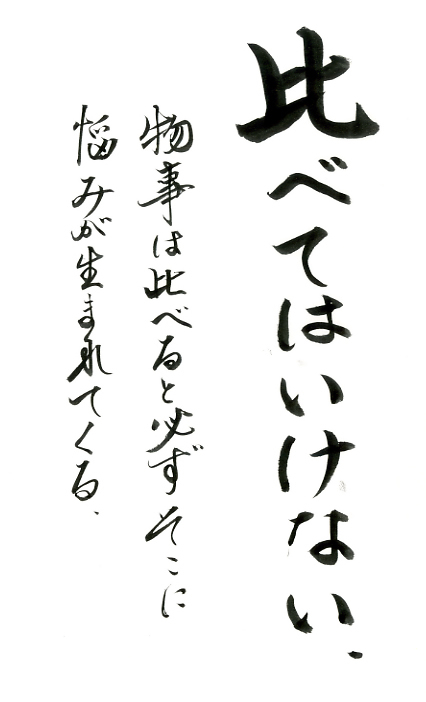 比べてはいけない.
物事は比べると必ずそこに
悩みが生まれてくる.